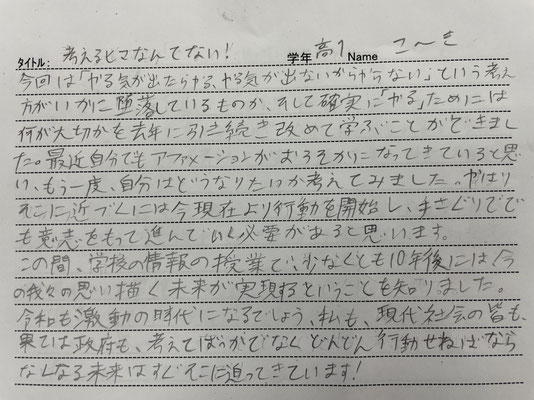 タイトル: 考えるヒマなんてない! 学年 高1 Name こ〜き
今回は「やる気が出たらやる、やる気が出ないからやらない」という考え
方がいかに堕落しているものか、そして確実に「やる」ためには
何が大切かを去年に引き続き改めて学ぶことができまし
た。最近自分でもアファメーションがおろそかになってきていると思
い、もう一度、自分はどうなりたいか考えてみました。やはり
そこに近づくには今現在より行動を開始し、手さぐりでで
も意志をもって進んでいく必要があると思います。
この間、学校の情報の授業で、少なくとも10年後には今
の我々の思い描く未来が実現するということを知りました。
令和も激動の時代になるでしょう、私も、現代社会の皆も、
果ては政府も、考えてばっかでなくどんどん行動せねばなら
なくなる未来はすぐそこに迫ってきています!